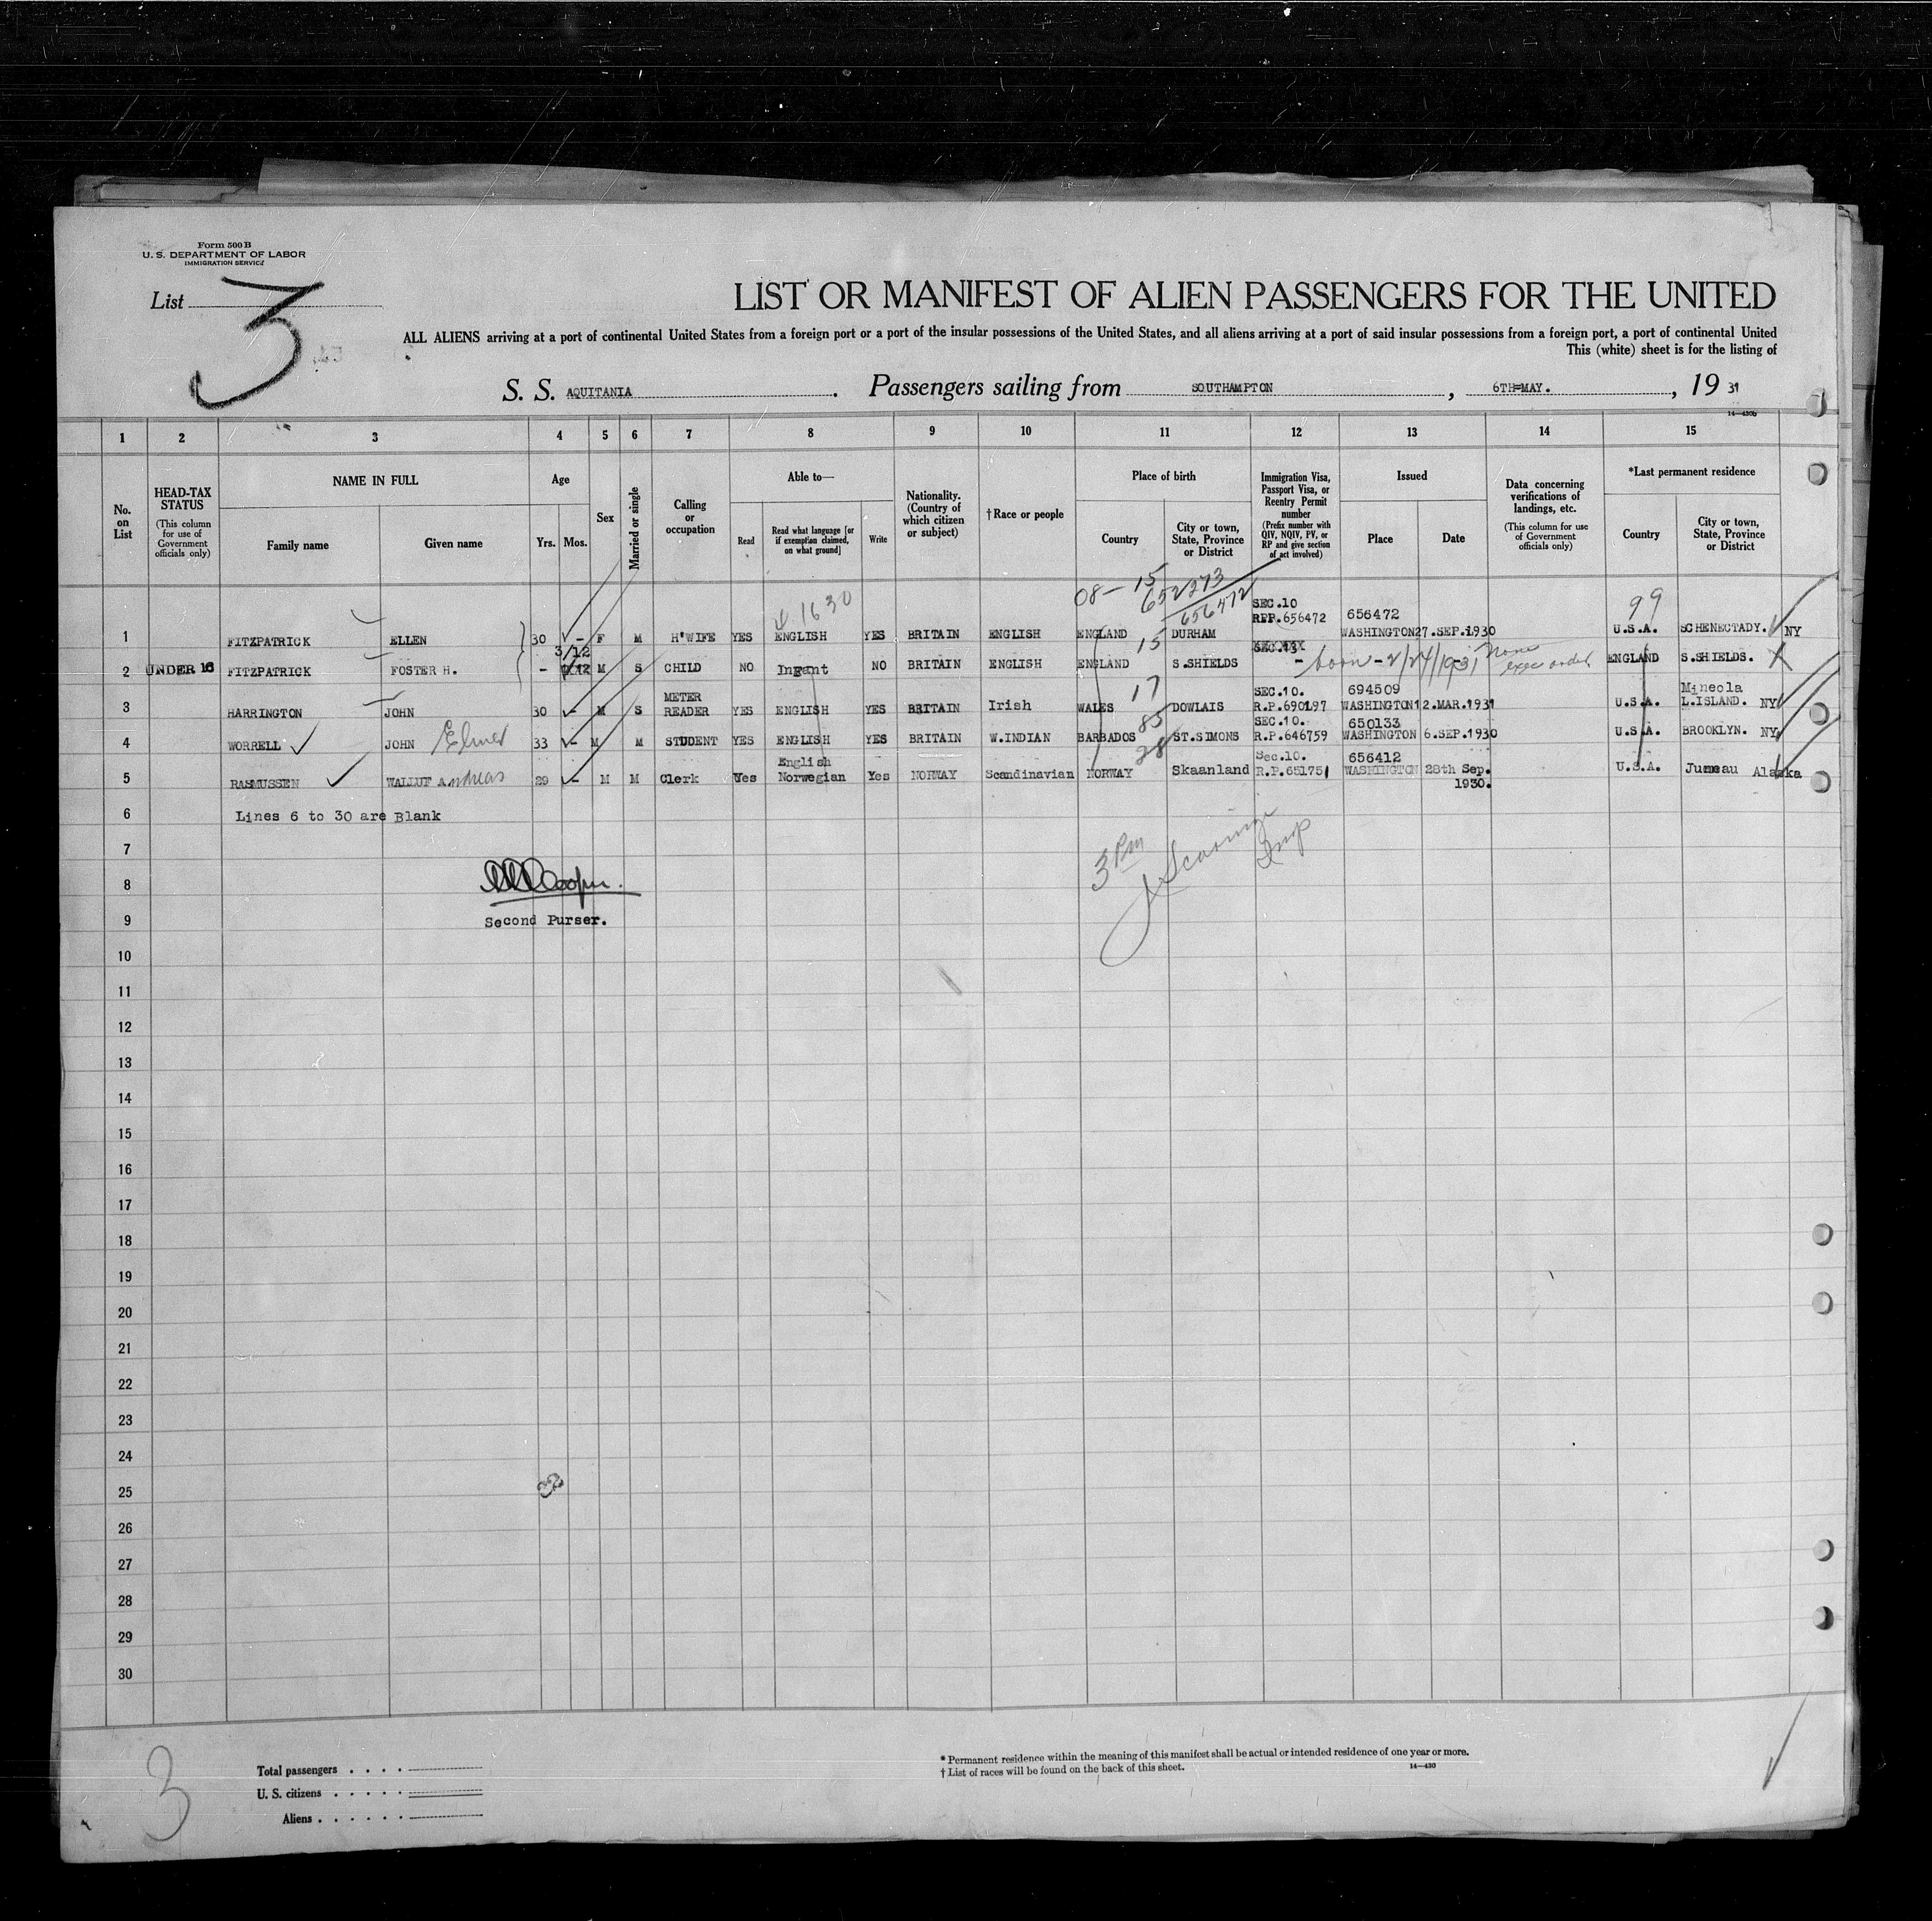 Form 500 B
U. S. DEPARTMENT OF LABOR
IMMIGRATION SERVICE
List 3
LIST OR MANIFEST OF ALIEN PASSENGERS FOR THE UNITED
ALL ALIENS arriving at a port of continental United States from a foreign port or a port of the insular possessions of the United States, and all aliens arriving at a port of said insular possessions from a foreign port, a port of continental United
This (white) sheet is for the listing of
S. S. AQUITANIA. Passengers sailing from SOUTHAMPTON, 6TH=MAY., 19 31
14—430b
1 2 3 4 5 6 7 8 9 10 11 12 13 14 15
No. on List
HEAD-TAX STATUS
(This column for use of Government officials only)
NAME IN FULL
Family name
Given name
Age
Yrs. Mos.
Sex
Married or single
Calling or occupation
Able to—
Read
Read what language [or if exemption claimed, on what ground]
Write
Nationality. (Country of which citizen or subject)
†Race or people
Place of birth
Country
City or town, State, Province or District
Immigration Visa, Passport Visa, or Reentry Permit number
(Prefix number with QIV, NQIV, PV, or RP and give section of act involved)
Issued
Place
Date
Data concerning verifications of landings, etc.
(This column for use of Government officials only)
*Last permanent residence
Country
City or town, State, Province or District
1630 08-15 652273 656472 99
1 FITZPATRICK ELLEN 30 - F M H'WIFE YES ENGLISH YES BRITAIN ENGLISH ENGLAND DURHAM SEC.10 REP.656472 656472 WASHINGTON 27.SEP.1930 U.S.A. SCHENECTADY. NY
2 UNDER 16 FITZPATRICK FOSTER H. - 3/12 M S CHILD NO Infant NO BRITAIN ENGLISH ENGLAND 15 S.SHIELDS SEC.13 - born - 2/24/1931 none exec order ENGLAND S.SHIELDS.
3 HARRINGTON JOHN 30 - M S METER READER YES ENGLISH YES BRITAIN Irish WALES 17 DOWLAIS SEC.10. R.P.690197 694509 WASHINGTON 12.MAR.1931 U.S.A. Mineola L.ISLAND. NY
4 WORRELL JOHN Elmer 33 - M M STUDENT YES ENGLISH YES BRITAIN W.INDIAN BARBADOS 85 ST.SIMONS SEC.10. R.P.646759 650133 WASHINGTON 6.SEP.1930 U.S.A. BROOKLYN. NY
5 RASMUSSEN WALLUF Andreas 29 - M M Clerk Yes English Norwegian Yes NORWAY Scandinavian NORWAY 28 Skaanland Sec.10. R.P.651751 656412 WASHINGTON 28th Sep. 1930. U.S.A. Juneau Alaska
6 Lines 6 to 30 are Blank
7
8
Second Purser.
9
3 PM
Insp
10
11
12
13
14
15
16
17
18
19
20
21
22
23
24
25
26
27
28
29
30
3
Total passengers
U. S. citizens
Aliens
* Permanent residence within the meaning of this manifest shall be actual or intended residence of one year or more.
† List of races will be found on the back of this sheet.
14—430